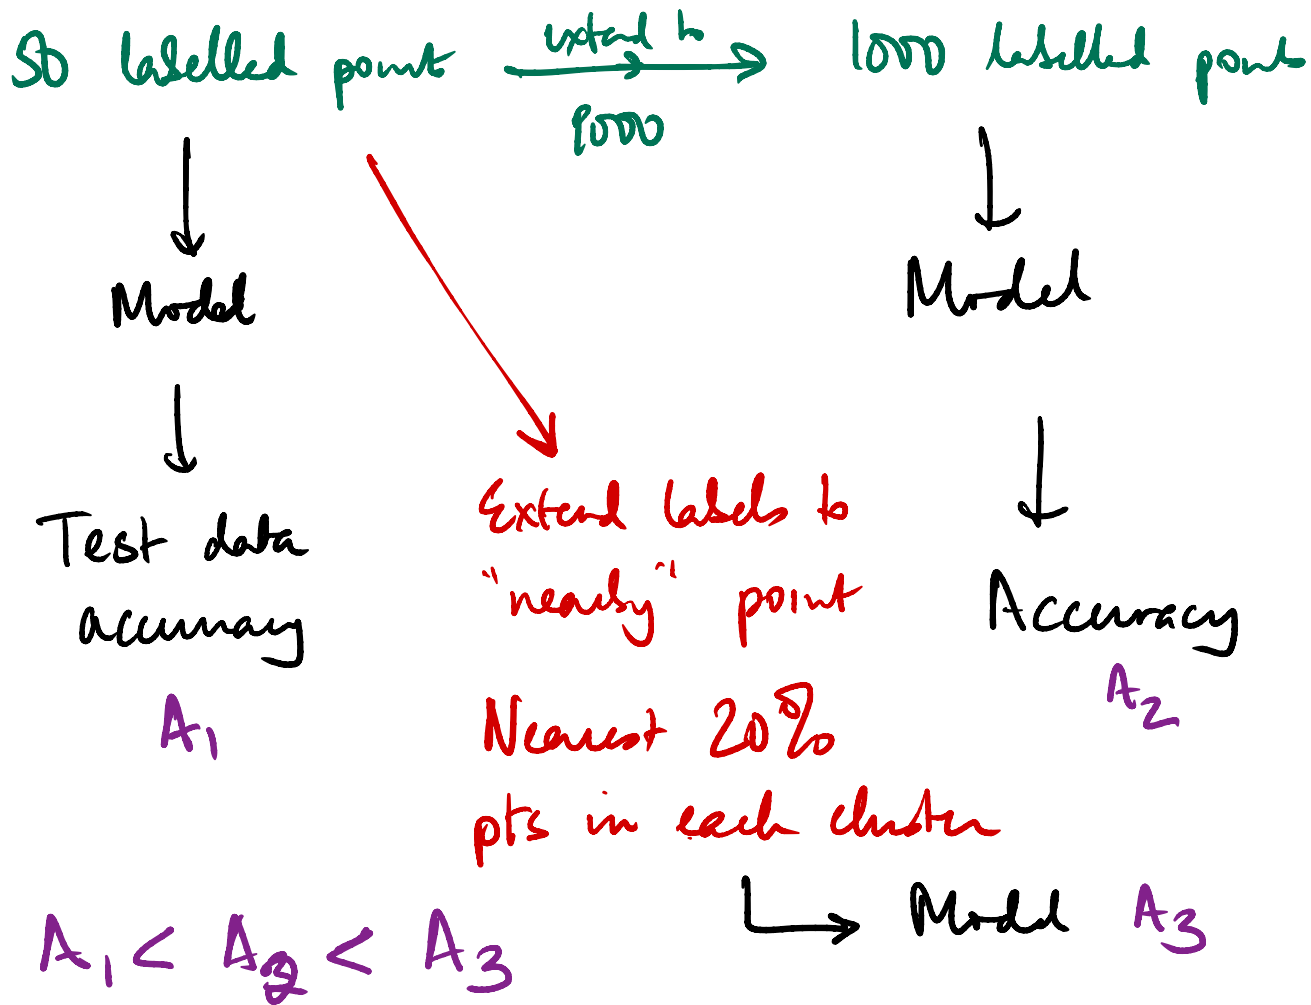 50 labelled point extend to 1000 labelled points
1000
Model
Model
Test data
accuracy
A1
Extend labels to
"nearby" point
Nearest 20%
pts in each cluster
Accuracy
A2
Model A3
A1 < A2 < A3